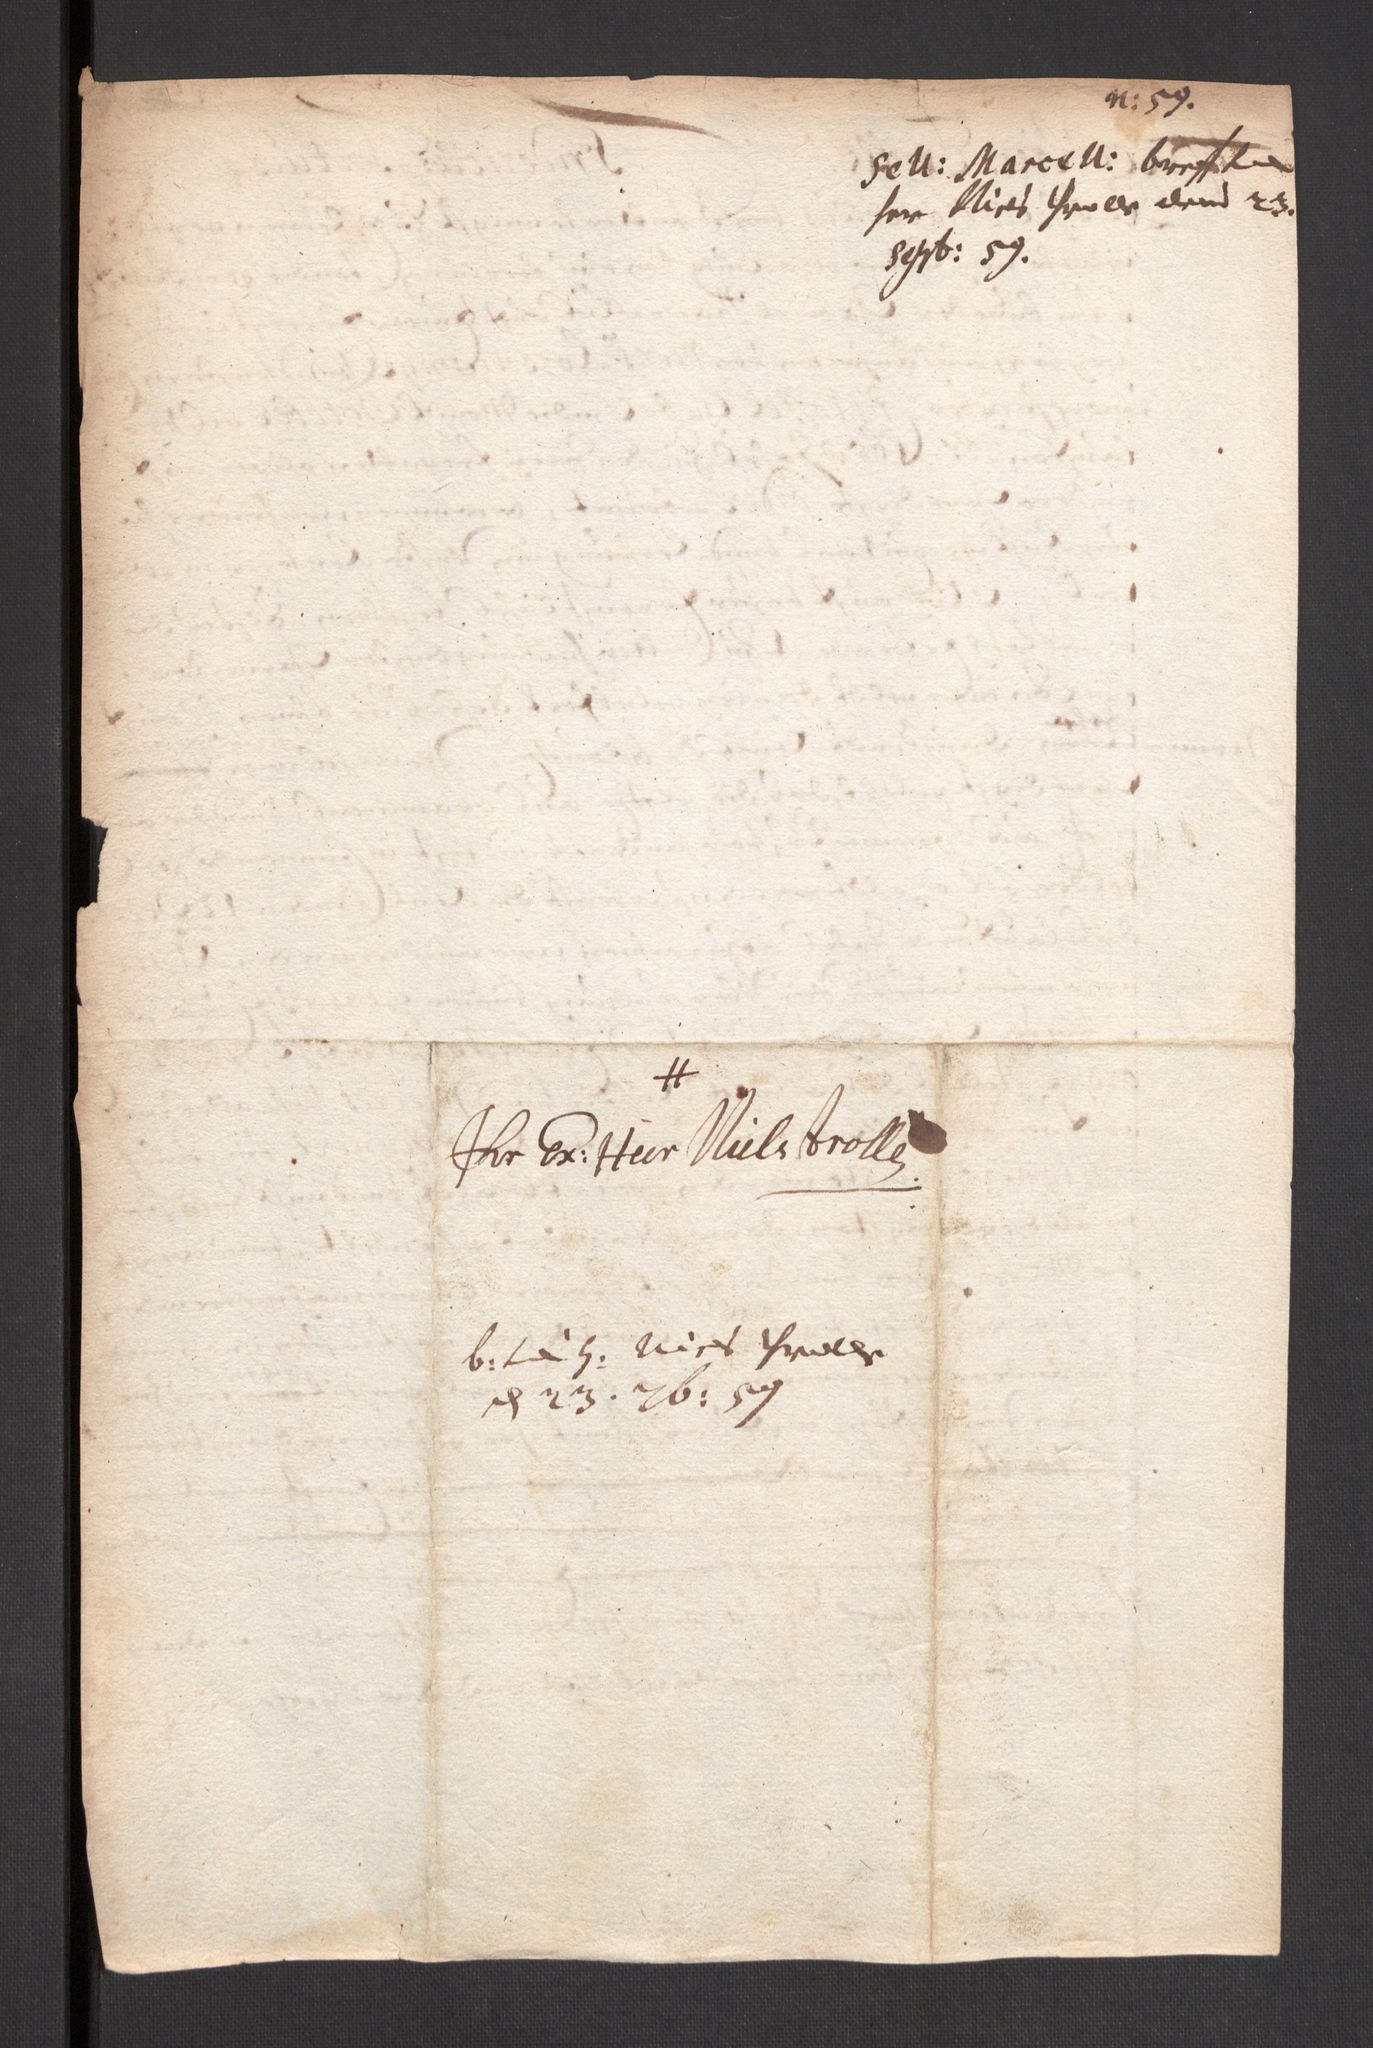 n: 59.
Sell: Marcell: breff til
her Niels Trolle dend 23.
Sept: 59.
#
Ihr Ex: Herr Niels trolle
b: til H: Niels Trolle
d 23. 7b: 59